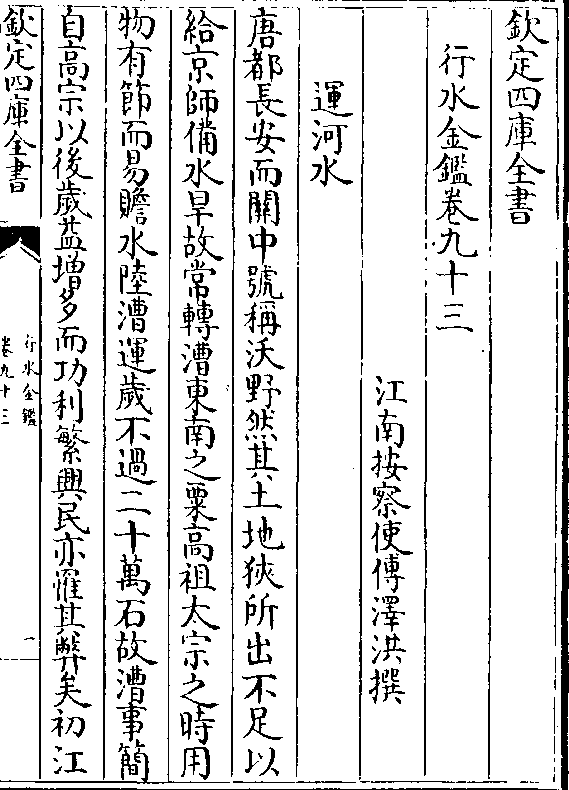 欽定四庫全書
行水金鑑卷九十三
江南按察使傅澤洪撰
運河水
唐都長安而關中號稱沃野然其土地狹所出不足以
給京師備水旱故常轉漕東南之粟高祖太宗之時用
物有節而易贍水陸漕運歲不過二十萬石故漕事簡
自高宗以後歲益增多而功利繁興民亦罹其弊矣初江
欽定四庫全書
行水金鑑
卷九十三
一